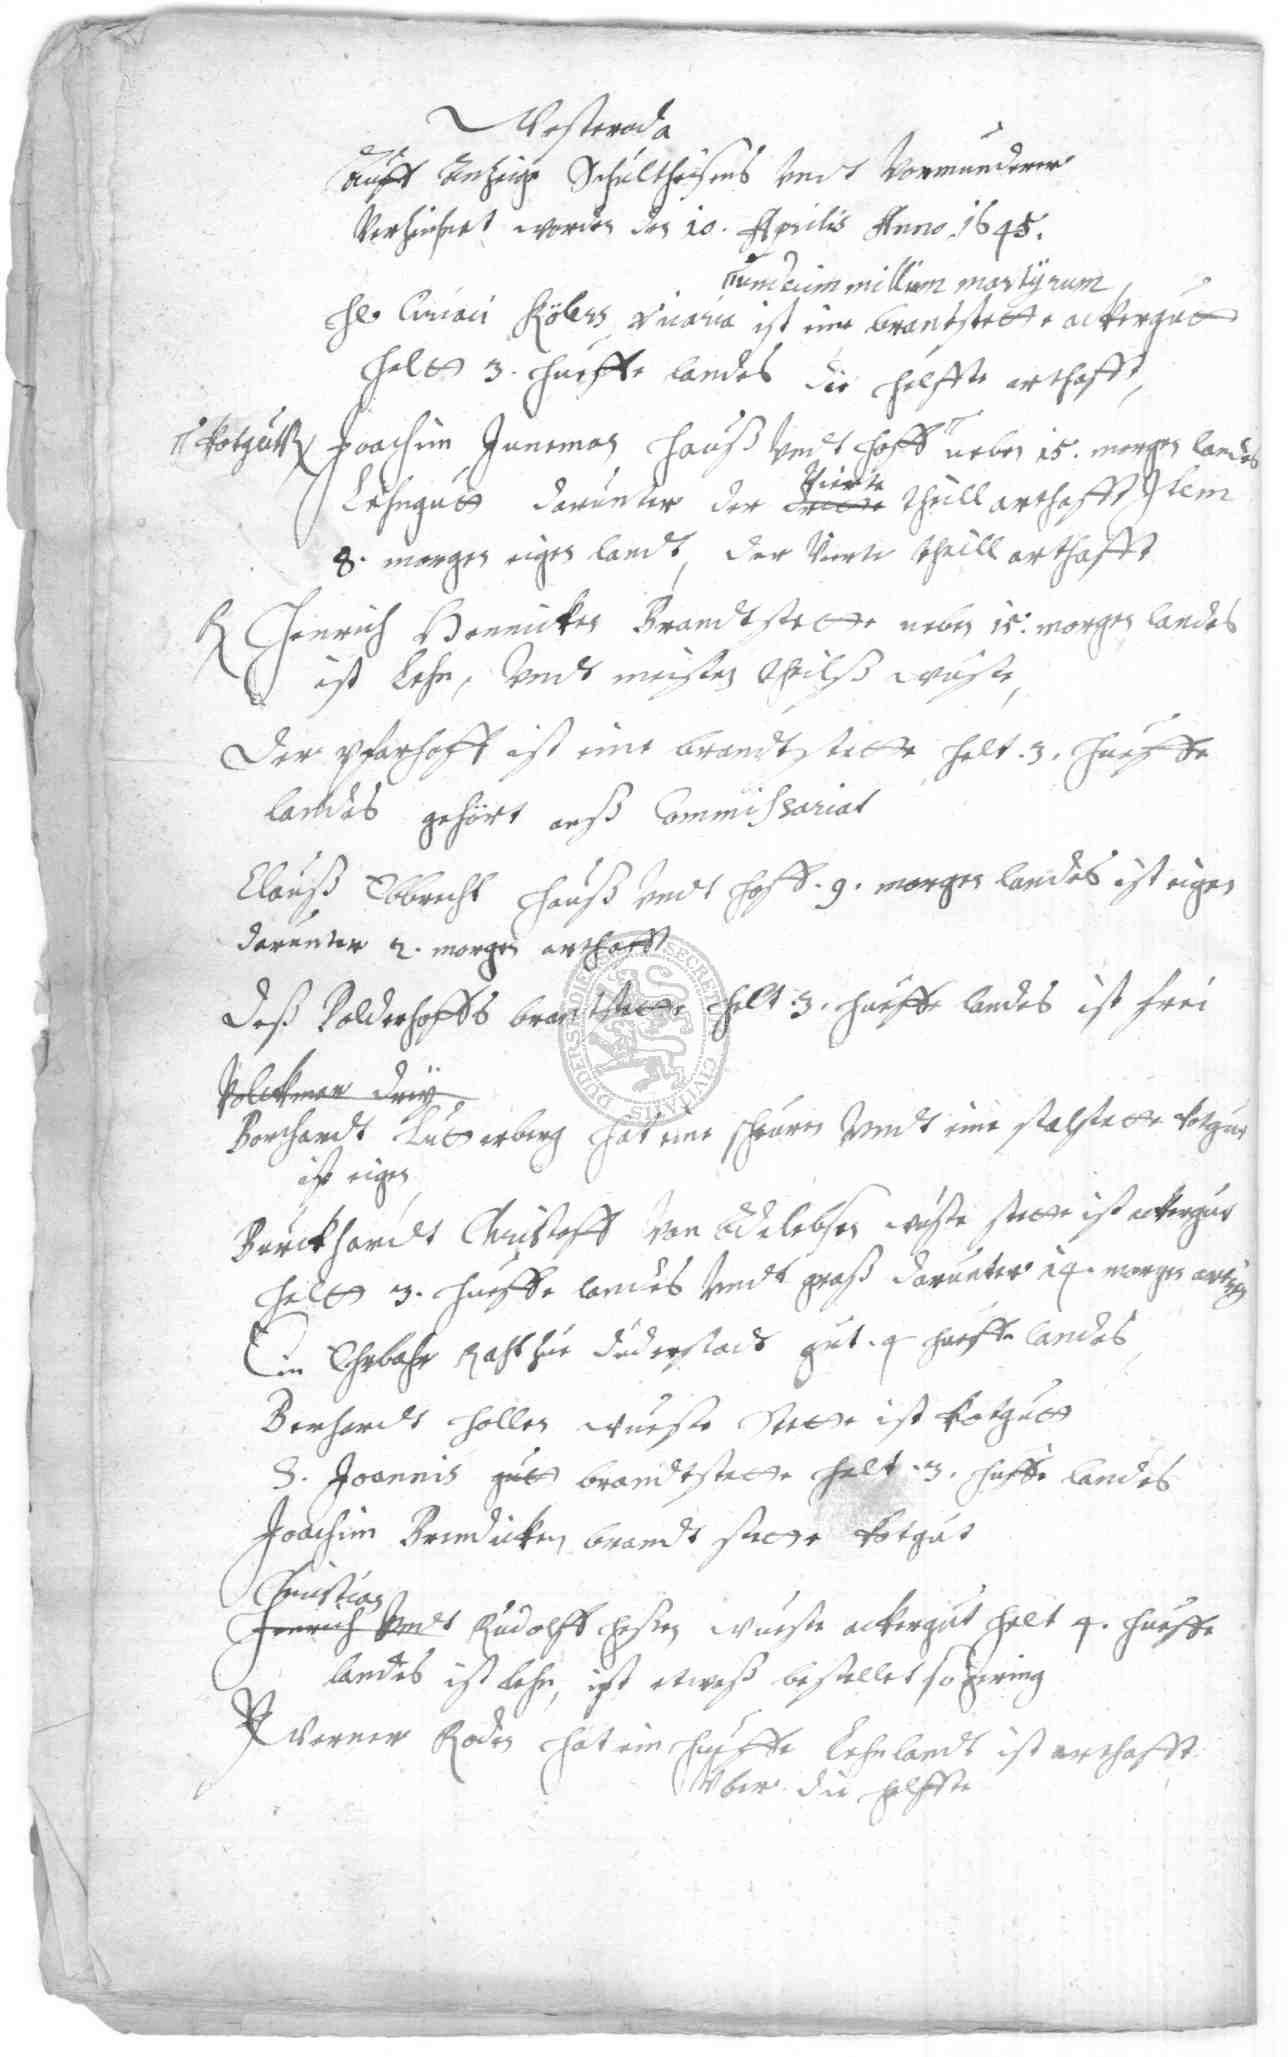 Westeroda
Auff Anzeige Schultheisens Undt Vormundere
Verzeichnet worden den 10. Aprilis Anno. 1645.
undecim millium martyrum
H. Ciriaci Vicaria ist eine brantstette ackergutt
helt 3. hueffe landes die helffte arthafft,
kotgutt Joachim Juneman hauß Undt hoff neben 15. morgen landes
Lehngutt darunter der dritte Vierte theill arthafft Item
8. morgen eigen landt, der Vierte theill arthafft
Henrich Hennicken Brandtstette neben 15. morgen landes
ist Lehn, Undt meisten theilß wuste,
Der pfarhoff ist eine brandtstette helt .3. hueffe
landes gehört anß Commissariat
Clauß Ebbrecht hauß Undt hoff .9. morgen landes ist eigen
darunter 2. morgen arthafft
Deß Polderhoffs brantstette helt .3. hueffe landes ist frei
Volckmar
Borchardt Lutterberg hat eine scheuren Undt eine stalstette kotgut
ist eigen
Burckhardt Christoff Von Adelebsen wuste stette ist ackergut
helt 3. hueffe landes Undt graß darunter 14. morgen
Ein Ehrbahr Raht zue Duderstadt gut .4 hueffe landes,
Berhardt Hollen wueste stette ist kotgutt
S. Joannis gutt brandtstette helt .3. huffe landes
Joachim Brendicken brandt stette kotgut
Christian
Henrich Undt Rudolff Hessen wueste ackergut helt 4. hueffe
landes ist Lehn, ist etwaß bestellet so gering
Werner Roden hat ein hueffe Lehnlandt ist arthafft
Uber die helffte
SECRET CIVITATIS DUDERSTADIE